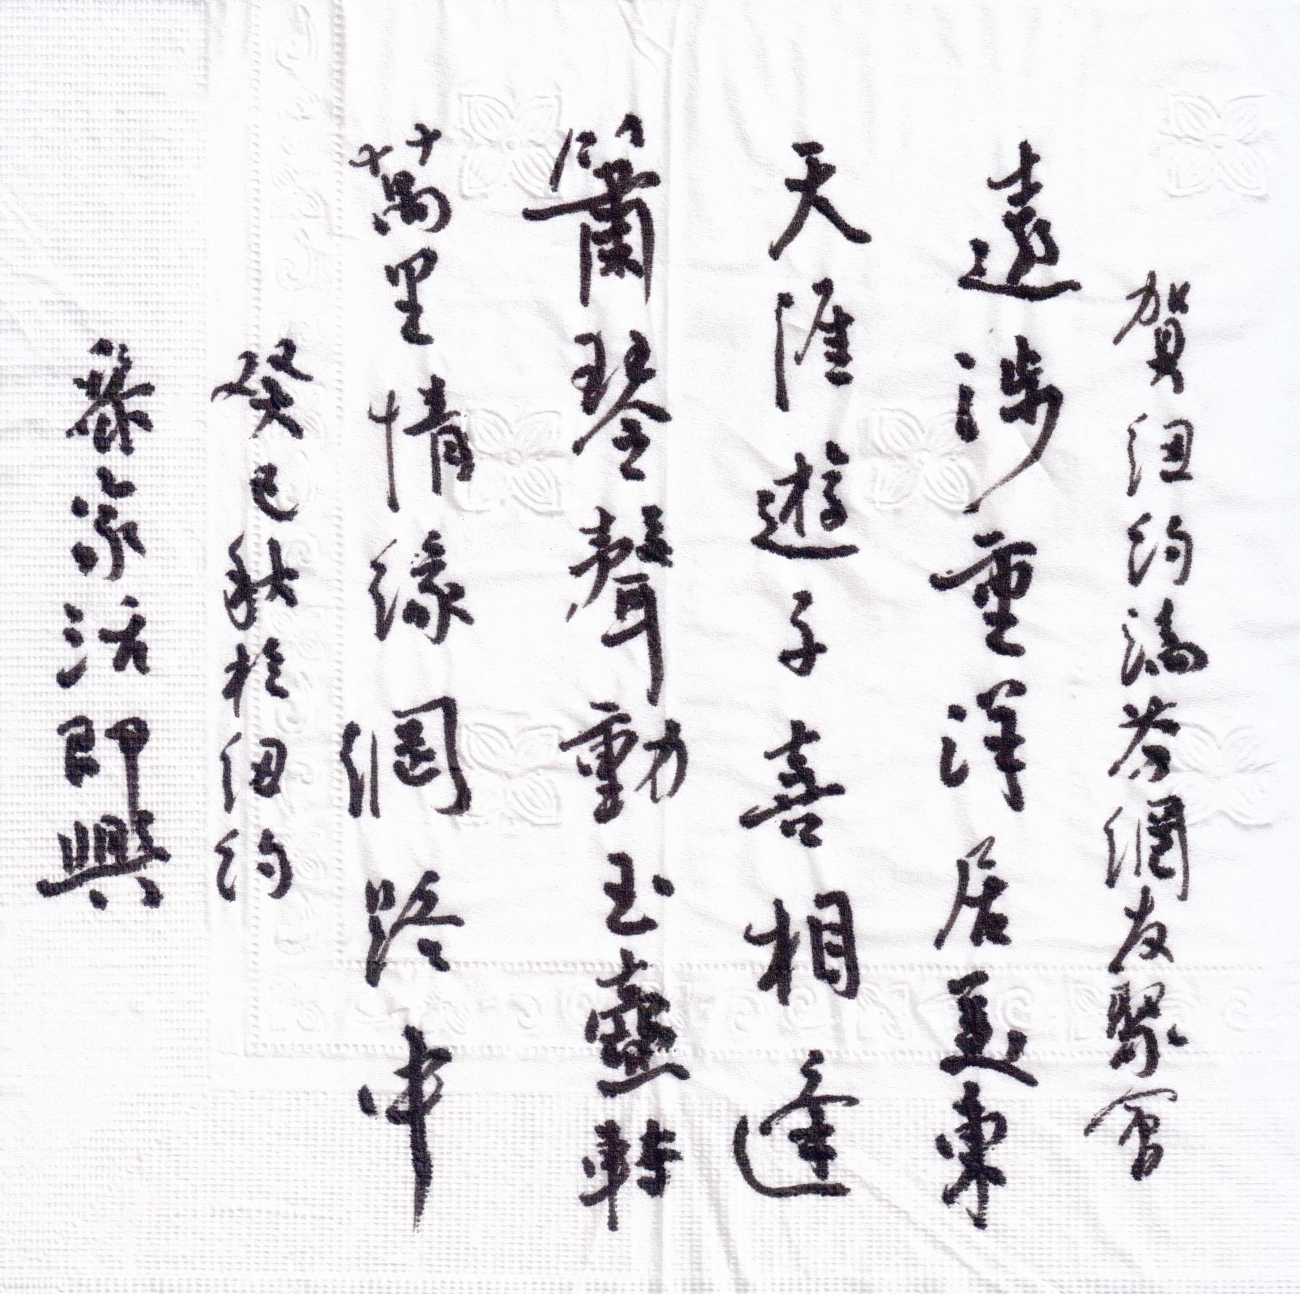 賀紐約滴荅網友聚會
遠涉重洋居美東
天涯遊子喜相逢
簫琴聲動玉壺轉
萬里情緣網路中
癸巳秋於紐約
家活即興